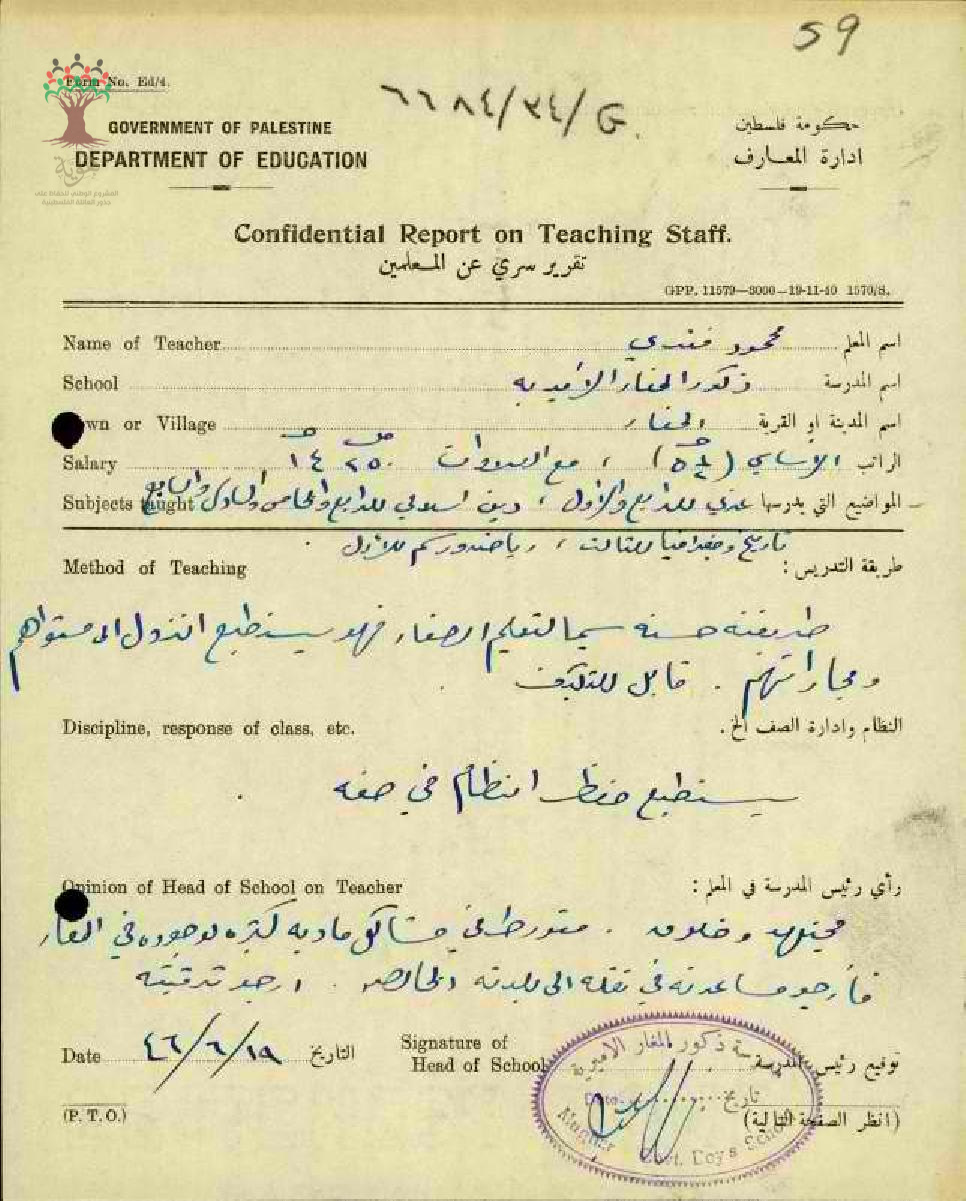 59
Form No. Ed/4.
٦٦٨٤/٣٤/G.
GOVERNMENT OF PALESTINE
حكومة فلسطين
DEPARTMENT OF EDUCATION
ادارة المعارف
المشروع الوطني للحفاظ على
جذور العائلة الفلسطينية
Confidential Report on Teaching Staff.
تقرير سري عن المعلمين
GPP. 11579—3000—19-11-40 1570/S.
Name of Teacher محمود فندي اسم المعلم
School ذكور المغار الأميريه اسم المدرسة
Town or Village المغار اسم المدينة او القرية
Salary الراتب الاساسي مع العلاوات ٢٥٠ ١٤
Subjects taught المواضيع التي يدرسها عربي للرابع والأول ، دين اسلامي للرابع والخامس والسادس والسابع
تاريخ وجغرافيا للثالث ، رياضه ورسم للأول .
Method of Teaching طريقة التدريس :
طريقته حسنه سيما لتعليم الصغار فهو يستطيع النزول الى مستواهم
ومجاراتهم . قابل للتكيف .
Discipline, response of class, etc. النظام وادارة الصف الخ.
يستطيع حفظ النظام في صفه .
Opinion of Head of School on Teacher رأي رئيس المدرسة في المعلم :
مجتهد وخلوق . متورط في مشاكل ماديه كثيره لوجوده في المغار
فأرجو مساعدته في نقله الى بلدته الخالصه . ارجو ترقيته
Date ١٩/٦/٤٦ التاريخ Signature of Head of School توقيع رئيس المدرسة
مدرسة ذكور المغار الاميرية
Date تاريخ
Mughar Govt. Boys School
(P. T. O.) (انظر الصفحة التالية)